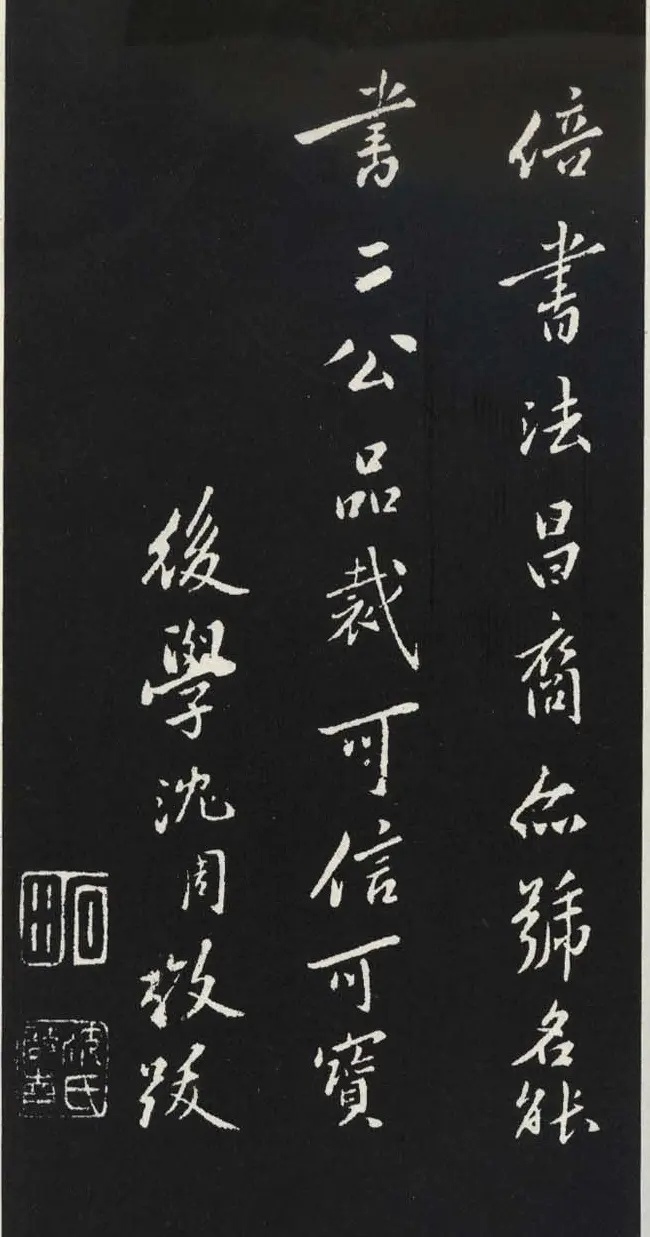 倍書法昌裔亦號名能
書二公品裁可信可寶
後學沈周敬跋
石田